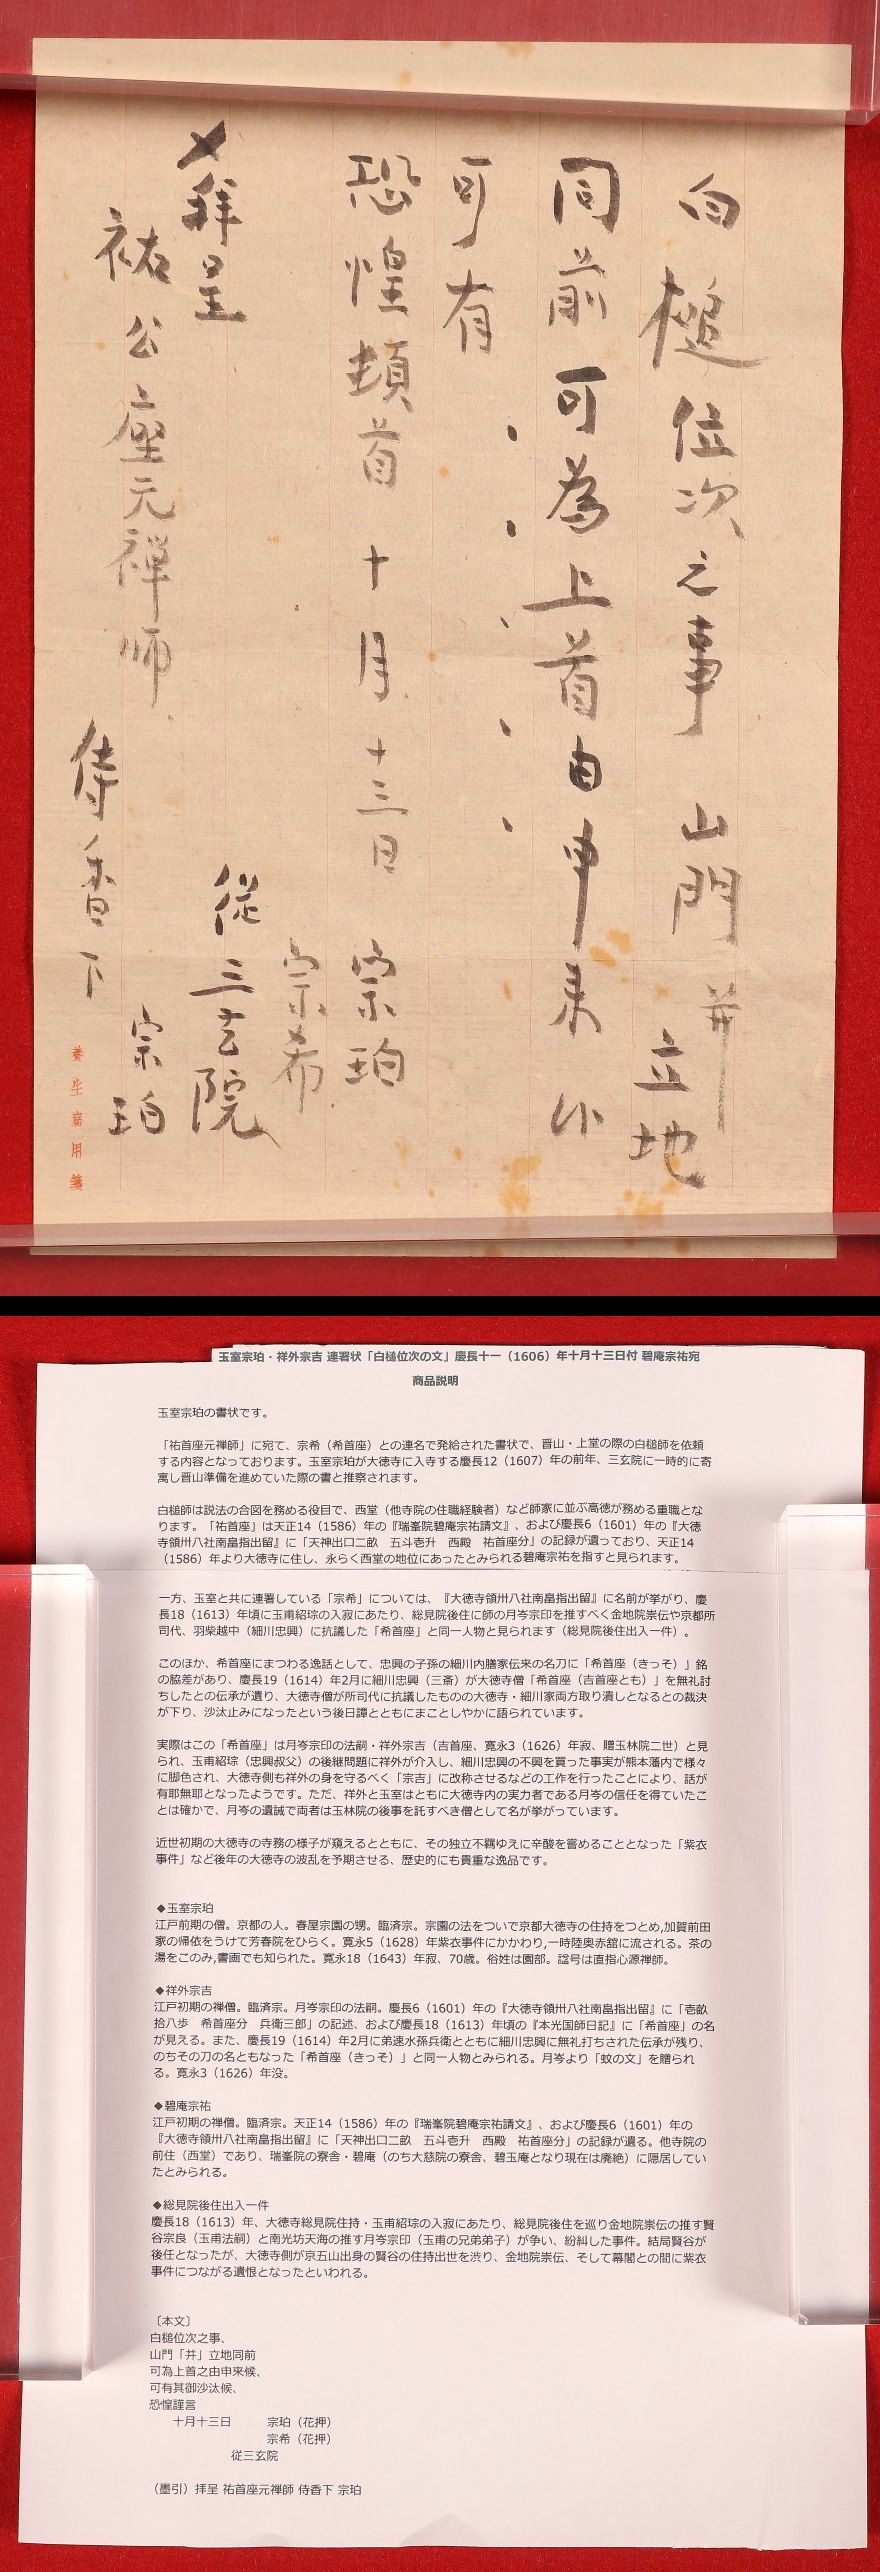 白槌位次之事 山門并立地
同前可為上首由申来候
可有、、、、、
恐惶頓首 十月十三日 宗珀
宗希
従三玄院
〆拝呈
祐公座元禅師 侍香下 宗珀
養生窩用箋
玉室宗珀・祥外宗吉 連署状「白槌位次の文」慶長十一（1606）年十月十三日付 碧庵宗祐宛
商品説明
玉室宗珀の書状です。
「祐首座元禅師」に宛て、宗希（希首座）との連名で発給された書状で、晋山・上堂の際の白槌師を依頼
する内容となっております。玉室宗珀が大徳寺に入寺する慶長12（1607）年の前年、三玄院に一時的に寄
寓し晋山準備を進めていた際の書と推察されます。
白槌師は説法の合図を務める役目で、西堂（他寺院の住職経験者）など師家に並ぶ高徳が務める重職とな
ります。「祐首座」は天正14（1586）年の『瑞峯院碧庵宗祐請文』、および慶長6（1601）年の『大徳
寺領卅八社南畠指出留』に「天神出口二畝　五斗壱升　西殿　祐首座分」の記録が遺っており、天正14
（1586）年より大徳寺に住し、永らく西堂の地位にあったとみられる碧庵宗祐を指すと見られます。
一方、玉室と共に連署している「宗希」については、『大徳寺領卅八社南畠指出留』に名前が挙がり、慶
長18（1613）年頃に玉甫紹琮の入寂にあたり、総見院後住に師の月岑宗印を推すべく金地院崇伝や京都所
司代、羽柴越中（細川忠興）に抗議した「希首座」と同一人物と見られます（総見院後住出入一件）。
このほか、希首座にまつわる逸話として、忠興の子孫の細川内膳家伝来の名刀に「希首座（きっそ）」銘
の脇差があり、慶長19（1614）年2月に細川忠興（三斎）が大徳寺僧「希首座（吉首座とも）」を無礼討
ちしたとの伝承が遺り、大徳寺僧が所司代に抗議したものの大徳寺・細川家両方取り潰しとなるとの裁決
が下り、沙汰止みになったという後日譚とともにまことしやかに語られています。
実際はこの「希首座」は月岑宗印の法嗣・祥外宗吉（吉首座、寛永3（1626）年寂、贈玉林院二世）と見
られ、玉甫紹琮（忠興叔父）の後継問題に祥外が介入し、細川忠興の不興を買った事実が熊本藩内で様々
に脚色され、大徳寺側も祥外の身を守るべく「宗吉」に改称させるなどの工作を行ったことにより、話が
有耶無耶となったようです。ただ、祥外と玉室はともに大徳寺内の実力者である月岑の信任を得ていたこ
とは確かで、月岑の遺誡で両者は玉林院の後事を託すべき僧として名が挙がっています。
近世初期の大徳寺の寺務の様子が窺えるとともに、その独立不羈ゆえに辛酸を嘗めることとなった「紫衣
事件」など後年の大徳寺の波乱を予期させる、歴史的にも貴重な逸品です。
◆玉室宗珀
江戸前期の僧。京都の人。春屋宗園の甥。臨済宗。宗園の法をついで京都大徳寺の住持をつとめ,加賀前田
家の帰依をうけて芳春院をひらく。寛永5（1628）年紫衣事件にかかわり,一時陸奥赤舘に流される。茶の
湯をこのみ,書画でも知られた。寛永18（1643）年寂、70歳。俗姓は園部。諡号は直指心源禅師。
◆祥外宗吉
江戸初期の禅僧。臨済宗。月岑宗印の法嗣。慶長6（1601）年の『大徳寺領卅八社南畠指出留』に「壱畝
拾八歩　希首座分　兵衛三郎」の記述、および慶長18（1613）年頃の『本光国師日記』に「希首座」の名
が見える。また、慶長19（1614）年2月に弟速水孫兵衛とともに細川忠興に無礼打ちされた伝承が残り、
のちその刀の名ともなった「希首座（きっそ）」と同一人物とみられる。月岑より「蚊の文」を贈られ
る。寛永3（1626）年没。
◆碧庵宗祐
江戸初期の禅僧。臨済宗。天正14（1586）年の『瑞峯院碧庵宗祐請文』、および慶長6（1601）年の
『大徳寺領卅八社南畠指出留』に「天神出口二畝　五斗壱升　西殿　祐首座分」の記録が遺る。他寺院の
前住（西堂）であり、瑞峯院の寮舎・碧庵（のち大慈院の寮舎、碧玉庵となり現在は廃絶）に隠居してい
たとみられる。
◆総見院後住出入一件
慶長18（1613）年、大徳寺総見院住持・玉甫紹琮の入寂にあたり、総見院後住を巡り金地院崇伝の推す賢
谷宗良（玉甫法嗣）と南光坊天海の推す月岑宗印（玉甫の兄弟弟子）が争い、紛糾した事件。結局賢谷が
後任となったが、大徳寺側が京五山出身の賢谷の住持出世を渋り、金地院崇伝、そして幕閣との間に紫衣
事件につながる遺恨となったといわれる。
〔本文〕
白槌位次之事、
山門「并」立地同前
可為上首之由申来候、
可有其御沙汰候、
恐惶謹言
十月十三日　宗珀（花押）
宗希（花押）
従三玄院
（墨引）拝呈 祐首座元禅師 侍香下 宗珀